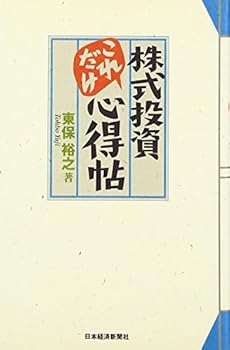 株式投資
これ
だけ
心得帖
東保裕之 著
Toubo Yuji
日本経済新聞社